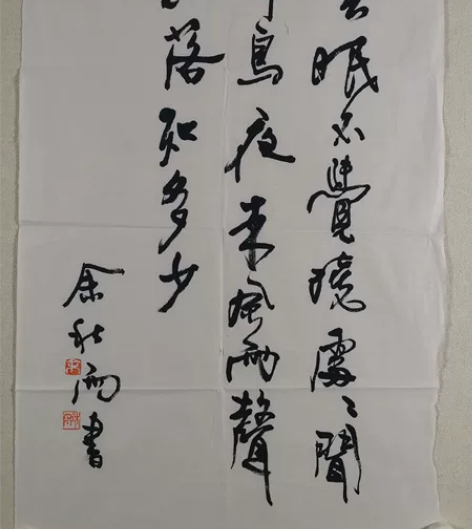 眠不覺曉處〻聞
鳥夜来風雨聲
落知多少
余秋雨書